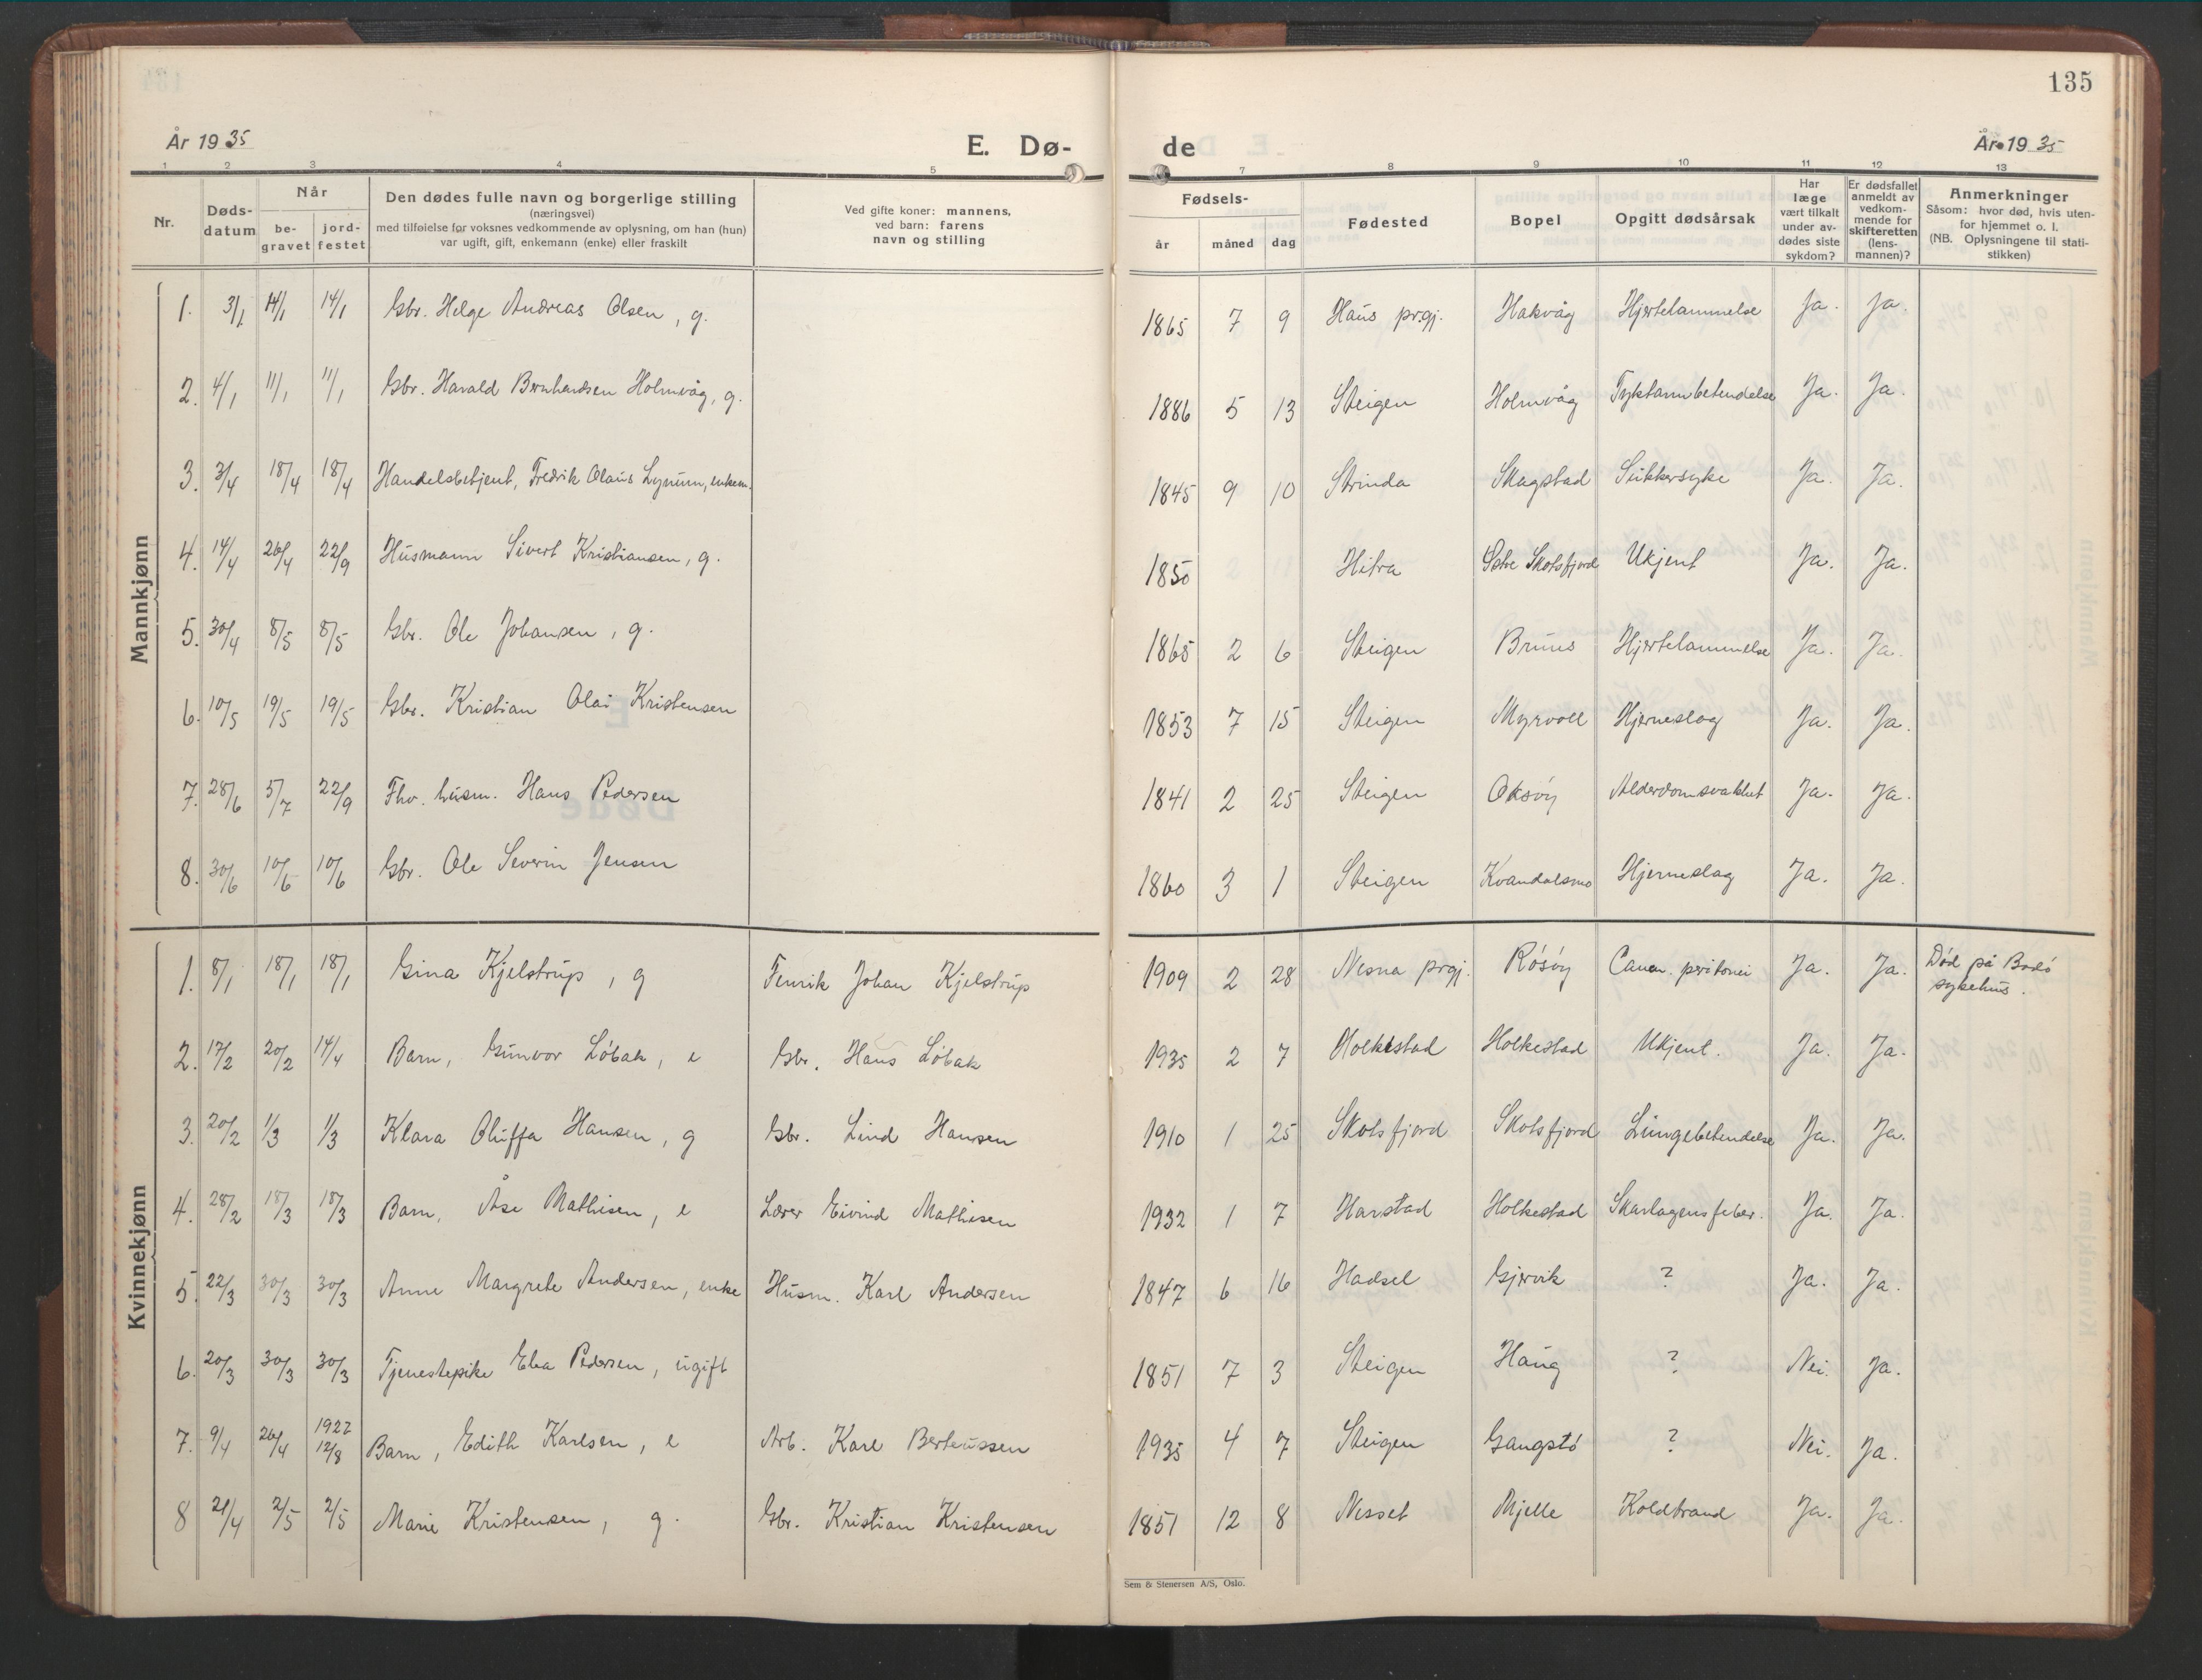 135
År 1935
E. Dø-
de
År 1935
1 2 3 4 5 7 8 9 10 11 12 13
Nr.
Døds-
datum
Når
be-
gravet
jord-
festet
Den dødes fulle navn og borgerlige stilling
(næringsvei)
med tilføielse før voksnes vedkommende av oplysning, om han (hun)
var ugift, gift, enkemann (enke) eller fraskilt
Ved gifte koner: mannens,
ved barn: farens
navn og stilling
Fødsels-
år måned dag
Fødested
Bopel
Opgitt dødsårsak
Har
læge
vært tilkalt
under av-
dødes siste
sykdom?
Er dødsfallet
anmeldt av
vedkom-
mende for
skifteretten
(lens-
mannen)?
Anmerkninger
Såsom: hvor død, hvis uten-
for hjemmet o. l.
(NB. Oplysningene til stati-
stikken)
Mannkjønn
1. 3/1 14/1 14/1 Gbr. Helge Andreas Olsen, g. 1865 7 9 Haus prgj. Hakvåg Hjertelammelse Ja. Ja.
2. 4/1 11/1 11/1 Gbr. Harald Bernhardsen Holmvåg, g. 1886 5 13 Steigen Holmvåg Tyktarmbetendelse Ja. Ja.
3. 3/4 18/4 18/4 Handelsbetjent, Fredrik Olaus Lynum, enkem. 1845 9 10 Strinda Skagstad Sukkersyke Ja. Ja.
4. 14/4 26/4 22/9 Husmann Sivert Kristiansen, g. 1850 Hitra Østre Skotsfjord Ukjent Ja. Ja.
5. 30/4 8/5 8/5 Gbr. Ole Johansen, g. 1865 2 6 Steigen Brines Hjertelammelse Ja. Ja.
6. 10/5 19/5 19/5 Gbr. Kristian Olai Kristensen 1853 7 15 Steigen Myrvoll Hjerneslag Ja. Ja.
7. 28/6 5/7 22/9 Fhv. husm. Hans Pedersen 1841 2 25 Steigen Oksøy Alderdomsvakhet Ja. Ja.
8. 30/6 10/6 10/6 Gbr. Ole Severin Jensen 1860 3 1 Steigen Kvandalsmo Hjerneslag Ja. Ja.
Kvinnekjønn
1. 8/1 18/1 18/1 Gina Kjelstrup, g Fenrik Johan Kjelstrup 1909 2 28 Nesna prgj. Røsøy Cancr. peritonei Ja. Ja. Død på Bodø
sykehus.
2. 17/2 20/2 14/4 Barn, Gunvor Løbak, e Gbr. Hans Løbak 1935 2 7 Holkestad Holkestad Ukjent. Ja. Ja.
3. 20/2 1/3 1/3 Klara Oluffa Hansen, g Gbr. Lind Hansen 1910 1 25 Skotsfjord Skotsfjord Lungebetendelse Ja. Ja.
4. 28/2 18/3 18/3 Barn, Åse Mathisen, e Lærer Eivind Mathisen 1932 1 7 Harstad Holkestad Skarlagensfeber. Ja. Ja.
5. 22/3 30/3 30/3 Anne Margrete Andersen, enke Husm. Karl Andersen 1847 6 16 Hadsel Gjervik ? Ja. Ja.
6. 20/3 30/3 30/3 Tjenestepike Elea Pedersen, ugift 1851 7 3 Steigen Haug ? Nei. Ja.
7. 9/4 26/4 1927 12/8 Barn, Edith Karlsen, e Arb. Karl Berteussen 1935 4 7 Steigen Gangstø ? Nei. Ja.
8 21/4 2/5 2/5 Marie Kristensen, g. Gbr. Kristian Kristensen 1851 12 8 Nesset Mjelle Koldbrand Ja. Ja.
Sem & Stenersen A/S, Oslo.